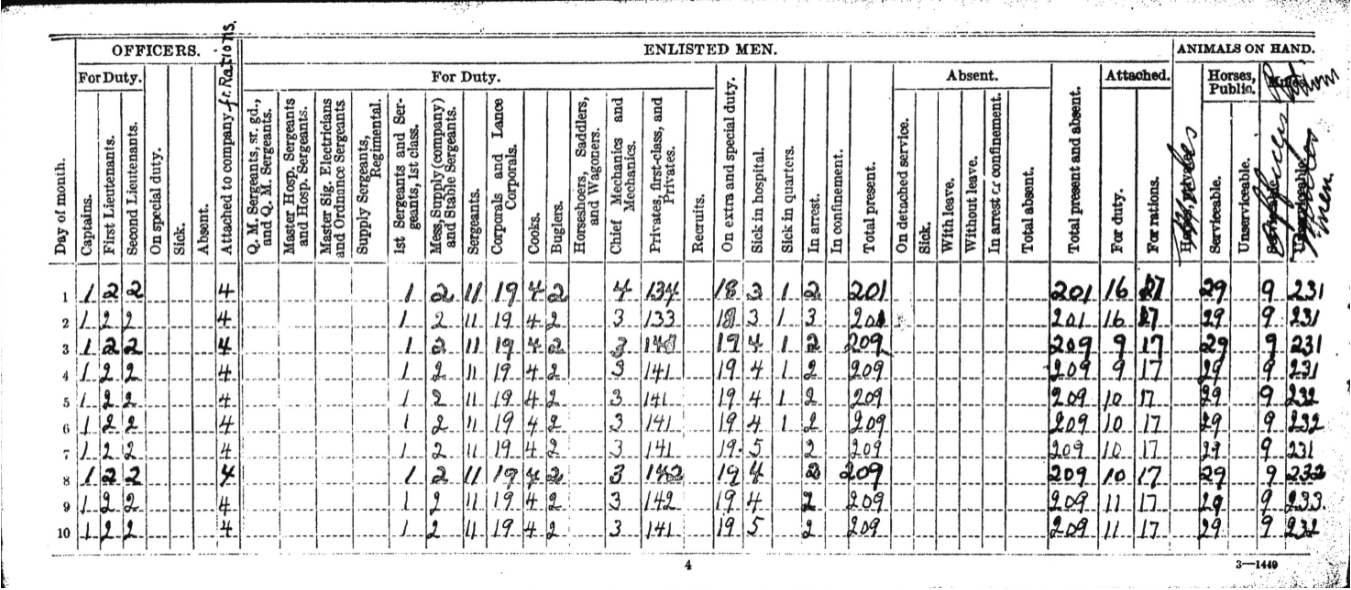 OFFICERS. ENLISTED MEN. ANIMALS ON HAND.
For Duty. For Duty. Absent. Attached. Horses, Public.
Day of month.
Captains.
First Lieutenants.
Second Lieutenants.
On special duty.
Sick.
Absent.
Attached to company fr. Rations.
Q. M. Sergeants, sr. gd., and Q. M. Sergeants.
Master Hosp. Sergeants and Hosp. Sergeants.
Master Sig. Electricians and Ordnance Sergeants
Supply Sergeants, Regimental.
1st Sergeants and Sergeants, 1st class.
Mess, Supply (company) and Stable Sergeants.
Sergeants.
Corporals and Lance Corporals.
Cooks.
Buglers.
Horseshoers, Saddlers, and Wagoners.
Chief Mechanics and Mechanics.
Privates, first-class, and Privates.
Recruits.
On extra and special duty.
Sick in hospital.
Sick in quarters.
In arrest.
In confinement.
Total present.
On detached service.
Sick.
With leave.
Without leave.
In arrest or confinement.
Total absent.
Total present and absent.
For duty.
For rations.
Serviceable.
Unserviceable.
men.
1 1 2 2 4 1 2 11 19 4 2 4 134 18 3 1 2 201 201 16 17 29 9 231
2 1 2 2 4 1 2 11 19 4 2 3 133 18 3 1 3 201 201 16 17 29 9 231
3 1 2 2 4 1 2 11 19 4 2 3 19 4 1 2 209 209 9 17 29 9 231
4 1 2 2 4 1 2 11 19 4 2 3 141 19 4 1 2 209 209 9 17 29 9 231
5 1 2 2 4 1 2 11 19 4 2 3 141 19 4 1 2 209 209 10 17 29 9 232
6 1 2 2 4 1 2 11 19 4 2 3 141 19 4 1 2 209 209 10 17 29 9 232
7 1 2 2 4 1 2 11 19 4 2 3 141 19 5 2 209 209 10 17 29 9 231
8 1 2 2 4 1 2 11 19 4 2 3 142 19 4 2 209 209 10 17 29 9 232
9 1 2 2 4 1 2 11 19 4 2 3 142 19 4 2 209 209 11 17 29 9 233
10 1 2 2 4 1 2 11 19 4 2 3 141 19 5 2 209 209 11 17 29 9 232
4 3—1449